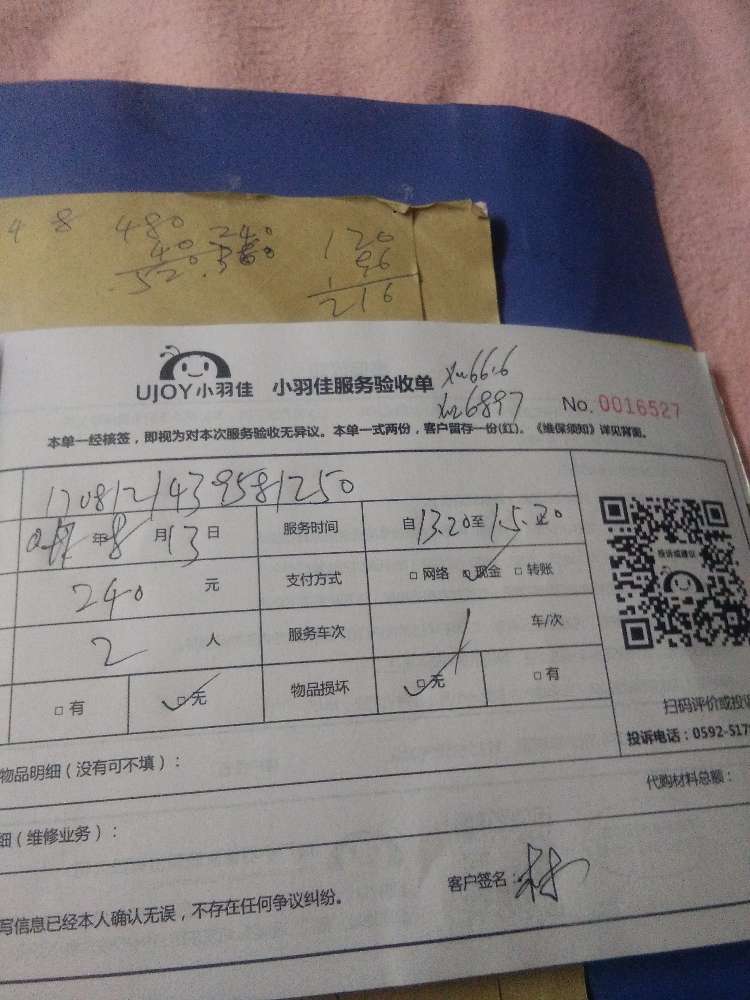 4 8 480 240 120
40 360 96
520 216
UJOY小羽佳 小羽佳服务验收单
xu6897 No. 0016527
本单一经核签，即视为对本次服务验收无异议。本单一式两份，客户留存一份(红)。《维保须知》详见背面。
1708121439581250
年8月13日 服务时间 自13.20至15.20
投诉或建议
240 元 支付方式 □网络 ☑现金 □转账
2 人 服务车次 1 车/次
□有 ☑无 物品损坏 ☑无 □有
扫码评价或投诉
投诉电话：0592-517
物品明细（没有可不填）：
代购材料总额：
细（维修业务）：
客户签名：林
写信息已经本人确认无误，不存在任何争议纠纷。